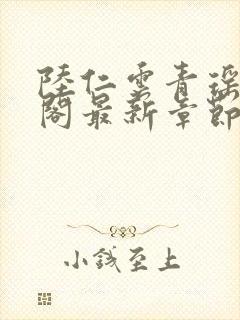 陸仁雲青瑶
閣最新章節
小錢至上